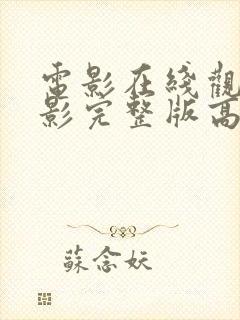 電影在綫觀
影完整版高
蘇念妖